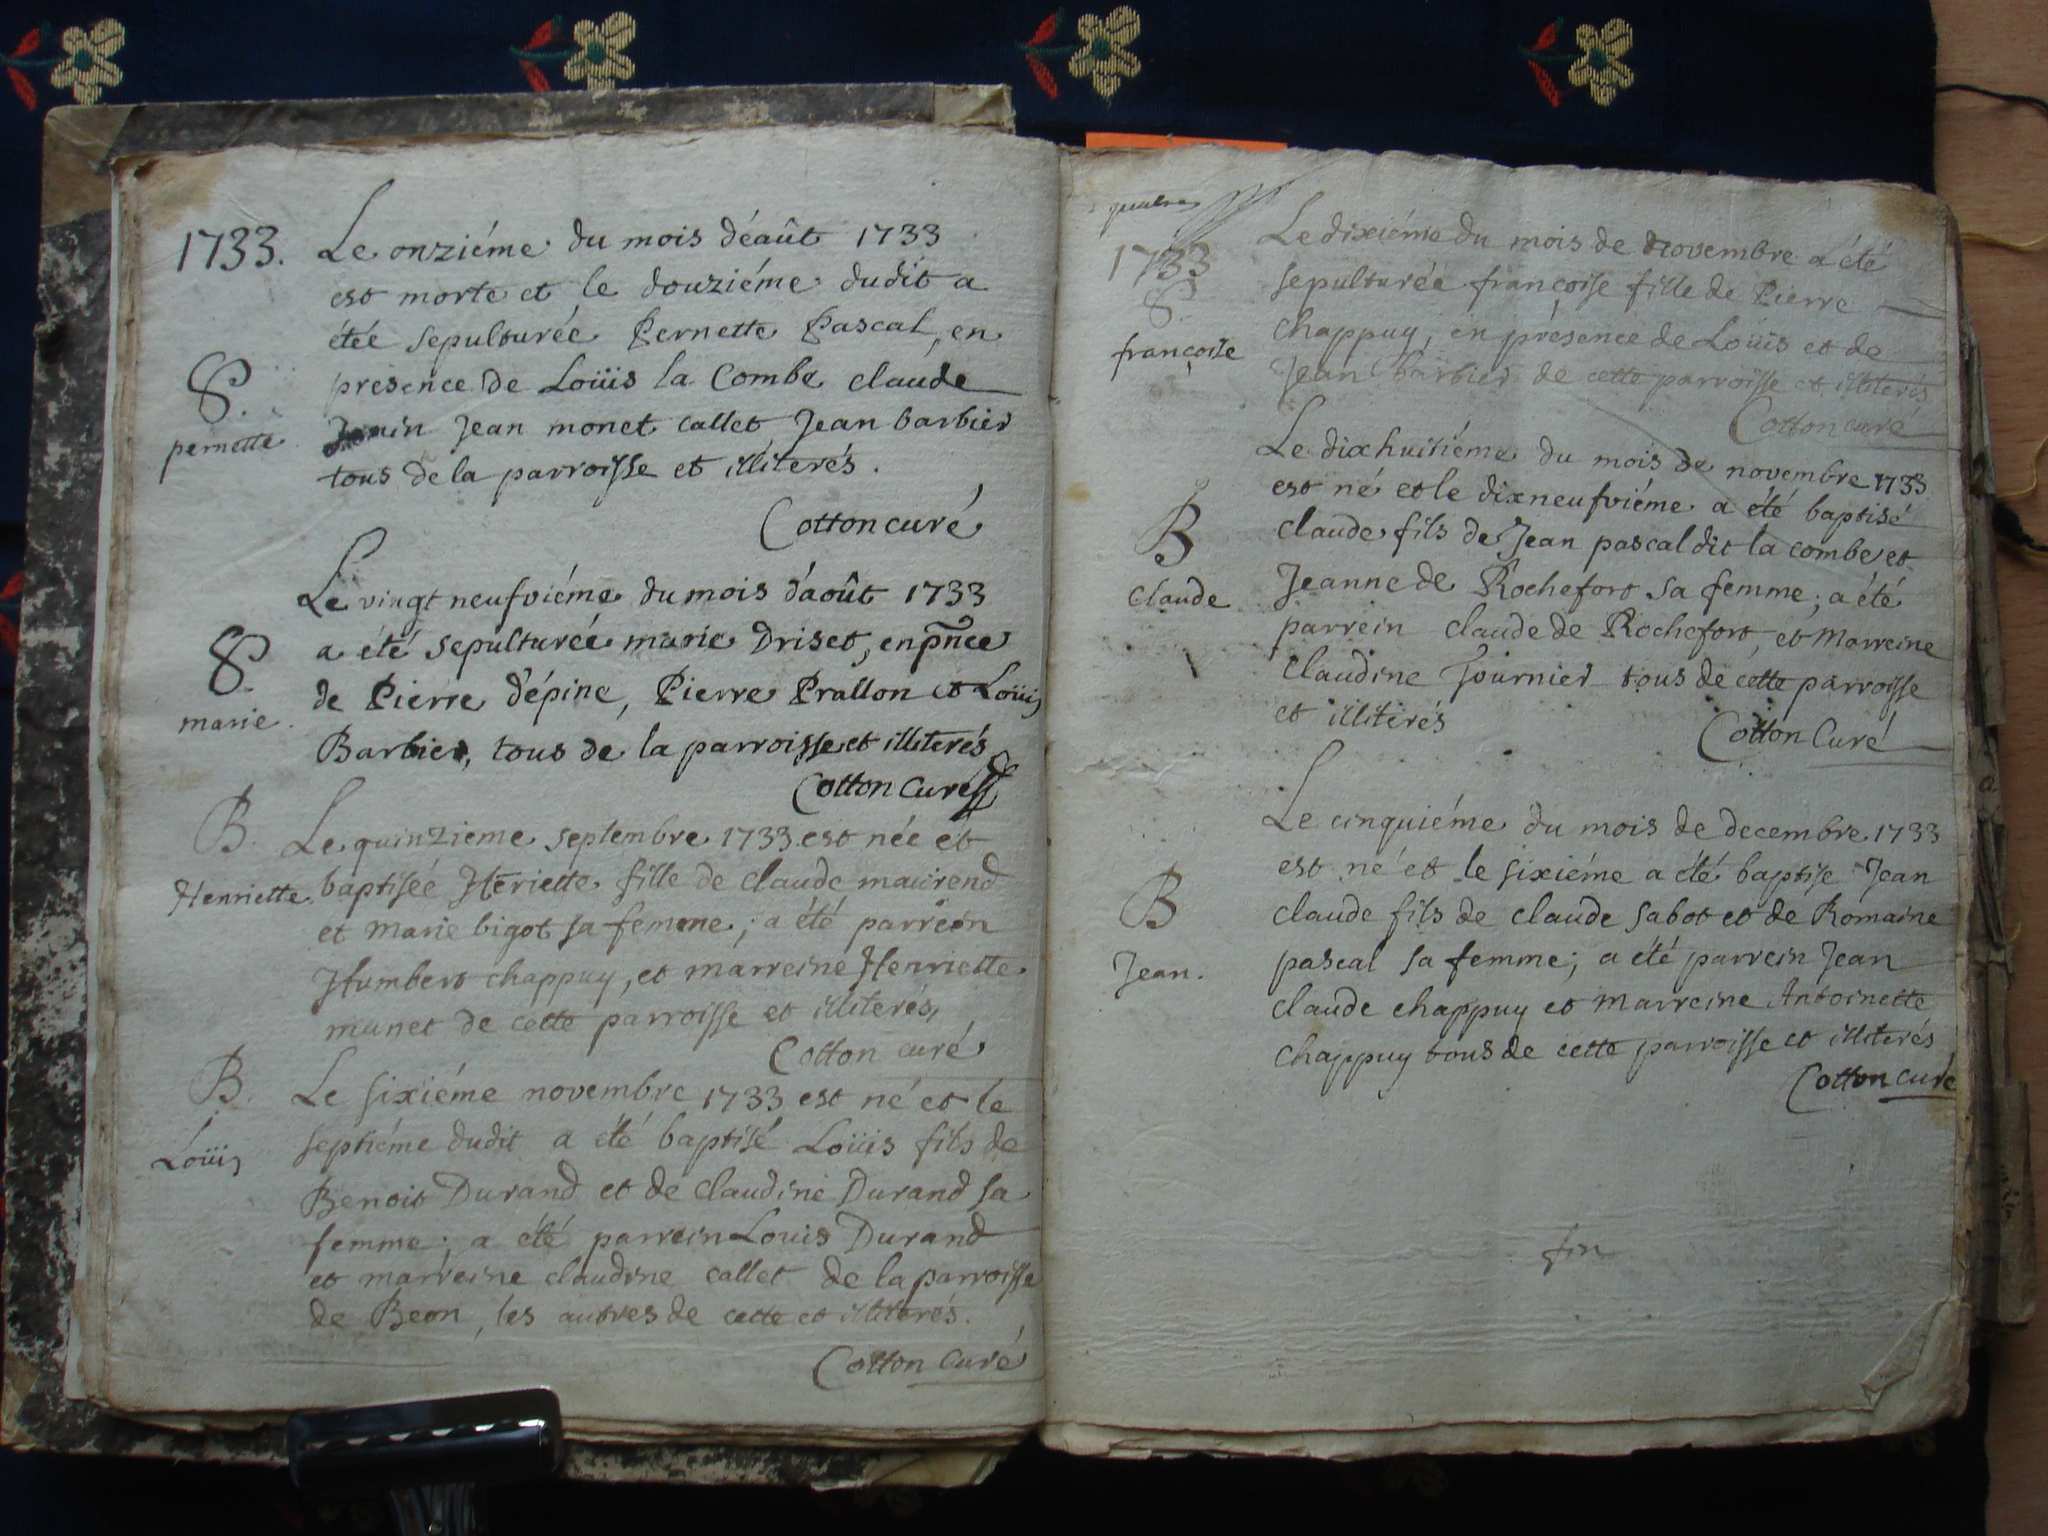 1733.
Le onziéme du mois déaût 1733
est morte et le douziéme dudit a
étée sepulturée Pernette Pascal, en
presence de Loüis la Combe claude
S.
pernette
Jean monet callet Jean barbier
tous de la parroisse et illiterés.
Cotton curé
Le vingt neufviéme du mois d'août 1733
a été sepulturée marie Driset, en pnce
S.
marie.
de Pierre d'épine, Pierre Prallon et Loüis
Barbier, tous de la parroisse et illiterés
Cotton Curé
B.
Henriette
Le quinzieme septembre 1733 est née et
baptisée Heriette fille de claude maurend
et Marie bigot sa femme; a été parrein
Humbert chappuy, et marreine Henriette
munet de cette parroisse et illiterés,
Cotton curé
B.
Loüis
Le sixiéme novembre 1733 est né et le
septiéme dudit a été baptisé Loüis fils de
Benoit Durand et de claudine Durand sa
femme; a été parrein Louis Durand
et marreine claudine callet de la parroisse
de Beon, les autres de cette et illiterés.
Cotton Curé
1733
S.
françoise
Le dixiéme du mois de novembre a été
sepulturée françoise fille de Pierre
chappuy, en présence de Loüis et de
Jean barbier de cette parroisse et illiterés
Cotton curé
Le dixhuitiéme du mois de novembre 1733
est né et le dixneufviéme a été baptisé
B
Claude
claude fils de Jean pascal dit la combe et
Jeanne de Rochefort sa femme; a été
parrein claude de Rochefort, et Marreine
Claudine fournier tous de cette parroisse
et illiterés
Cotton Curé
Le cinquiéme du mois de decembre 1733
est né et le sixiéme a été baptise Jean
B
Jean.
claude fils de claude sabot et de Romaine
pascal sa femme; a été parrein Jean
claude chappuy et Marreine Antoinette
chappuy tous de cette parroisse et illiterés
Cotton curé
fin